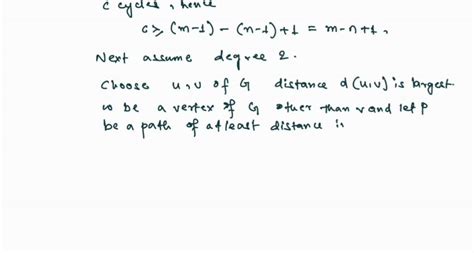 c cycles, hence
c ≥ (m-1) - (n-1) + 1 = m-n+1,
Next assume degree 2.
Choose u,v of G distance d(u,v) is largest
w be a vertex of G other than v and let P
be a path of atleast distance i